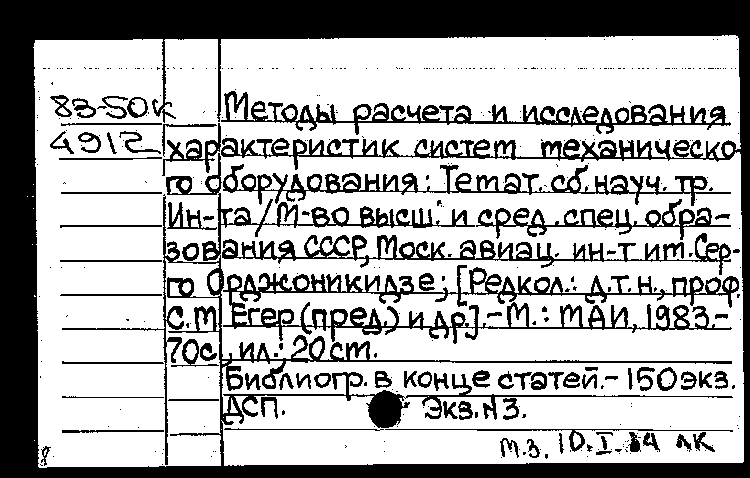 83-50к Методы расчета и исследования
4912 характеристик систем механическо-
го оборудования: Темат. сб. науч. тр.
Ин-та/М-во высш. и сред. спец. обра-
зования СССР, Моск. авиац. ин-т им. Сер-
го Орджоникидзе; [Редкол.: д.т.н., проф.
С.М Егер (пред.) и др.].-М.: МАИ, 1983.-
70с., ил.; 20 cm.
Библиогр. в конце статей.- 150экз.
ДСП. Экз.N3.
м.з. 10.I.84 лк